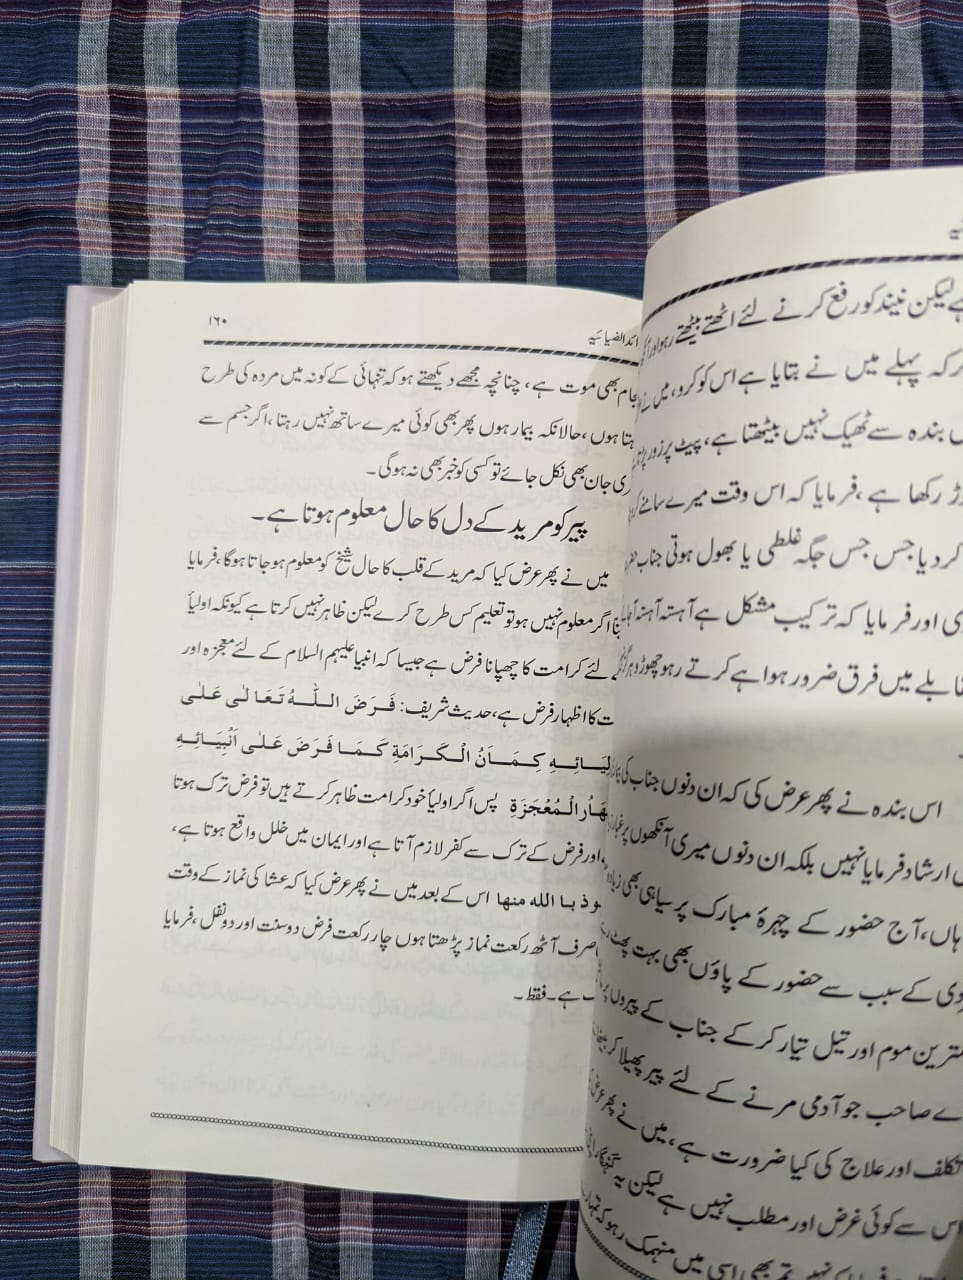 ہے لیکن نیند کو رفع کرنے کے لئے اٹھتے بیٹھتے رہو اور
کہ پہلے میں نے بتایا ہے اس کو کرو، میں نے
بندہ سے ٹھیک نہیں بیٹھتا ہے، پیٹ پر زور
رکھا ہے، فرمایا کہ اس وقت میرے سامنے
کر دیا جس جس جگہ غلطی یا بھول ہوتی جناب
اور فرمایا کہ ترکیب مشکل ہے آہستہ آہستہ
میں فرق ضرور ہوا ہے کرتے رہو چھوڑو
اس بندہ نے پھر عرض کی کہ ان دنوں جناب کی
ارشاد فرمایا نہیں بلکہ ان دنوں میری آنکھوں پر
ہاں، آج حضور کے چہرۂ مبارک پر سیاہی بھی
کے سبب سے حضور کے پاؤں بھی بہت پھٹ
موم اور تیل تیار کر کے جناب کے پیروں
صاحب جو آدمی مرنے کے لئے پیر پھیلا کر
تکلف اور علاج کی کیا ضرورت ہے، میں نے پھر عرض
اس سے کوئی غرض اور مطلب نہیں ہے لیکن یہ گنہگار
نہیں تم بھی اسی میں منہمک رہو کہ
۱۶۰
بھی موت ہے، چنانچہ مجھے دیکھتے ہو کہ تنہائی کے کونہ میں مردہ کی طرح
ہوں، حالانکہ بیمار ہوں پھر بھی کوئی میرے ساتھ نہیں رہتا، اگر جسم سے
جان بھی نکل جائے تو کسی کو خبر بھی نہ ہوگی۔
پیر کو مرید کے دل کا حال معلوم ہوتا ہے۔
میں نے پھر عرض کیا کہ مرید کے قلب کا حال شیخ کو معلوم ہو جاتا ہوگا، فرمایا
اگر معلوم نہیں ہو تو تعلیم کس طرح کرے لیکن ظاہر نہیں کرتا ہے کیونکہ اولیاٴ
لئے کرامت کا چھپانا فرض ہے جیسا کہ انبیا علیہم السلام کے لئے معجزہ اور
کا اظہار فرض ہے، حدیث شریف: فَرَضَ اللّٰهُ تَعَالٰی عَلٰی
کِمَانُ الْکَرَامَةِ کَمَا فَرَضَ عَلٰی اَنْبِیَائِهِ
الْمُعْجَزَةِ پس اگر اولیاٴ خود کرامت ظاہر کرتے ہیں تو فرض ترک ہوتا
اور فرض کے ترک سے کفر لازم آتا ہے اور ایمان میں خلل واقع ہوتا ہے،
با الله منها اس کے بعد میں نے پھر عرض کیا کہ عشا کی نماز کے وقت
صرف آٹھ رکعت نماز پڑھتا ہوں چار رکعت فرض دو سنت اور دو نفل، فرمایا
ہے۔ فقط۔